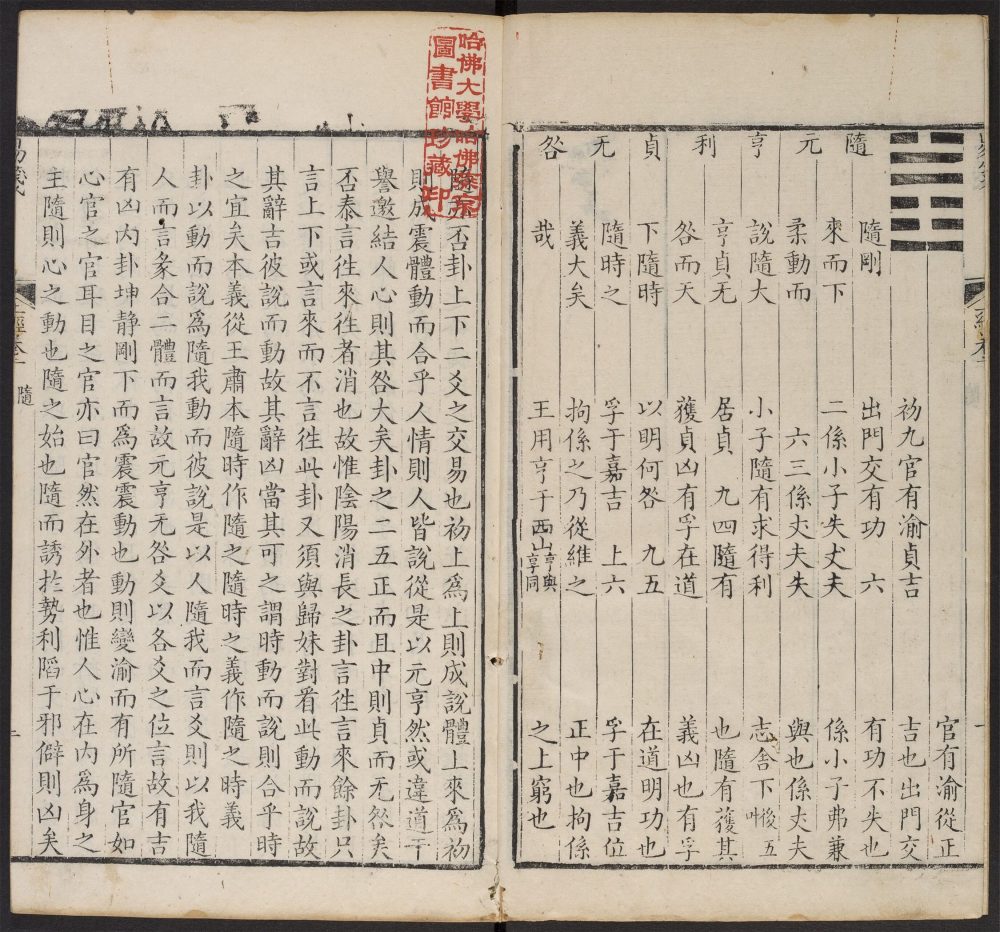 隨元亨利貞无咎
隨剛
來而下
柔動而
說隨大
亨貞无
咎而天
下隨時
隨時之
義大矣
哉
初九官有渝貞吉
出門交有功 六
二係小子失丈夫
六三係丈夫失
小子隨有求得利
居貞 九四隨有
獲貞凶有孚在道
以明何咎 九五
孚于嘉吉 上六
拘係之乃從維之
王用亨于西山亨與享同
官有渝從正
吉也出門交
有功不失也
係小子弗兼
與也係丈夫
志舍下後五叶
也隨有獲其
義凶也有孚
在道明功也
孚于嘉吉位
正中也拘係
之上窮也
哈佛大學哈佛燕京
圖書館珍藏印
否卦上下二爻之交易也初上爲上則成說體上來爲初
則成震體動而合乎人情則人皆說從是以元亨然或違道干
譽邀結人心則其咎大矣卦之二五正而且中則貞而无咎矣
否泰言徃來徃者消也故惟陰陽消長之卦言徃言來餘卦只
言上下或言來而不言徃此卦又須與歸妹對看此動而說故
其辭吉彼說而動故其辭凶當其可之謂時動而說則合乎時
之宜矣本義從王肅本隨時作隨之隨時之義作隨之時義
卦以動而說爲隨我動而彼說是以人隨我而言爻則以我隨
人而言彖合二體而言故元亨无咎爻以各爻之位言故有吉
有凶内卦坤静剛下而爲震震動也動則變渝而有所隨官如
心官之官耳目之官亦曰官然在外者也惟人心在内爲身之
主隨則心之動也隨之始也隨而誘扵勢利陷于邪僻則凶矣
經卷一
隨